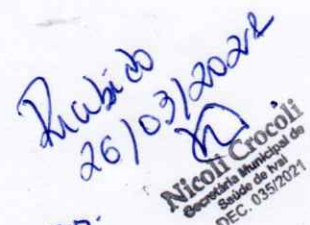 Recebido
26/03/2021
Nicoli Crocoli
Secretária Municipal de
Saúde de Ivaí
DEC. 035/2021